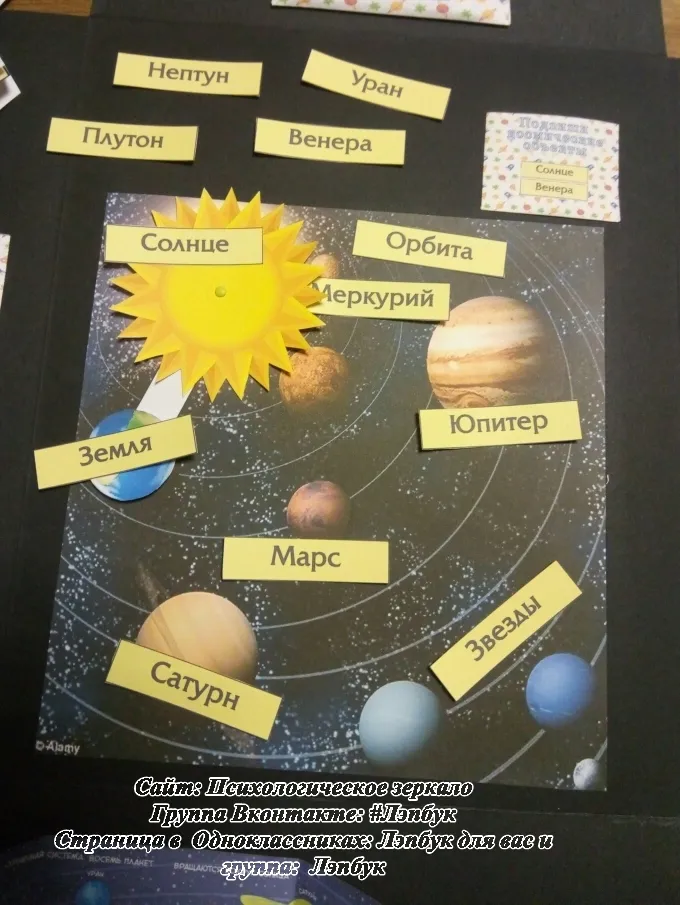 Нептун
Уран
Плутон
Венера
Подпиши
космические
объекты
Солнце
Венера
Солнце
Орбита
Меркурий
Юпитер
Земля
Марс
Звезды
Сатурн
© Alamy
Сайт: Психологическое зеркало
Группа Вконтакте: #Лэпбук
Страница в Одноклассниках: Лэпбук для вас и
группа: Лэпбук
СИСТЕМА ВОСЕМЬ ПЛАНЕТ
УРАН